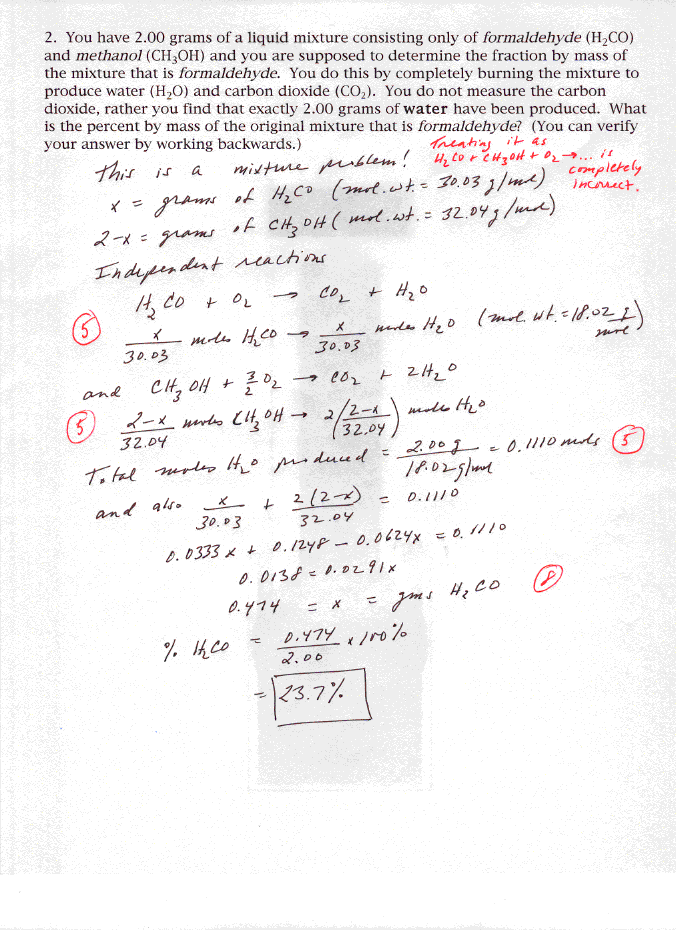 2. You have 2.00 grams of a liquid mixture consisting only of formaldehyde (H₂CO)
and methanol (CH₃OH) and you are supposed to determine the fraction by mass of
the mixture that is formaldehyde. You do this by completely burning the mixture to
produce water (H₂O) and carbon dioxide (CO₂). You do not measure the carbon
dioxide, rather you find that exactly 2.00 grams of water have been produced. What
is the percent by mass of the original mixture that is formaldehyde? (You can verify
your answer by working backwards.)
Treating it as
H₂CO + CH₃OH + O₂ → ... is
completely
incorrect.
This is a mixture problem!
x = grams of H₂CO (mol. wt. = 30.03 g/mol)
2-x = grams of CH₃OH (mol. wt. = 32.04 g/mol)
Independent reactions
H₂CO + O₂ → CO₂ + H₂O
(5) x/30.03 moles H₂CO → x/30.03 moles H₂O (mol. wt. = 18.02 g/mol)
and CH₃OH + 3/2 O₂ → CO₂ + 2H₂O
(5) 2-x/32.04 moles CH₃OH → 2(2-x/32.04) moles H₂O
Total moles H₂O produced = 2.00 g/18.02 g/mol = 0.1110 mols (5)
and also x/30.03 + 2(2-x)/32.04 = 0.1110
0.0333x + 0.1248 - 0.0624x = 0.1110
0.0138 = 0.0291x
0.474 = x = gms H₂CO (8)
% H₂CO = 0.474/2.00 x 100%
= 23.7%